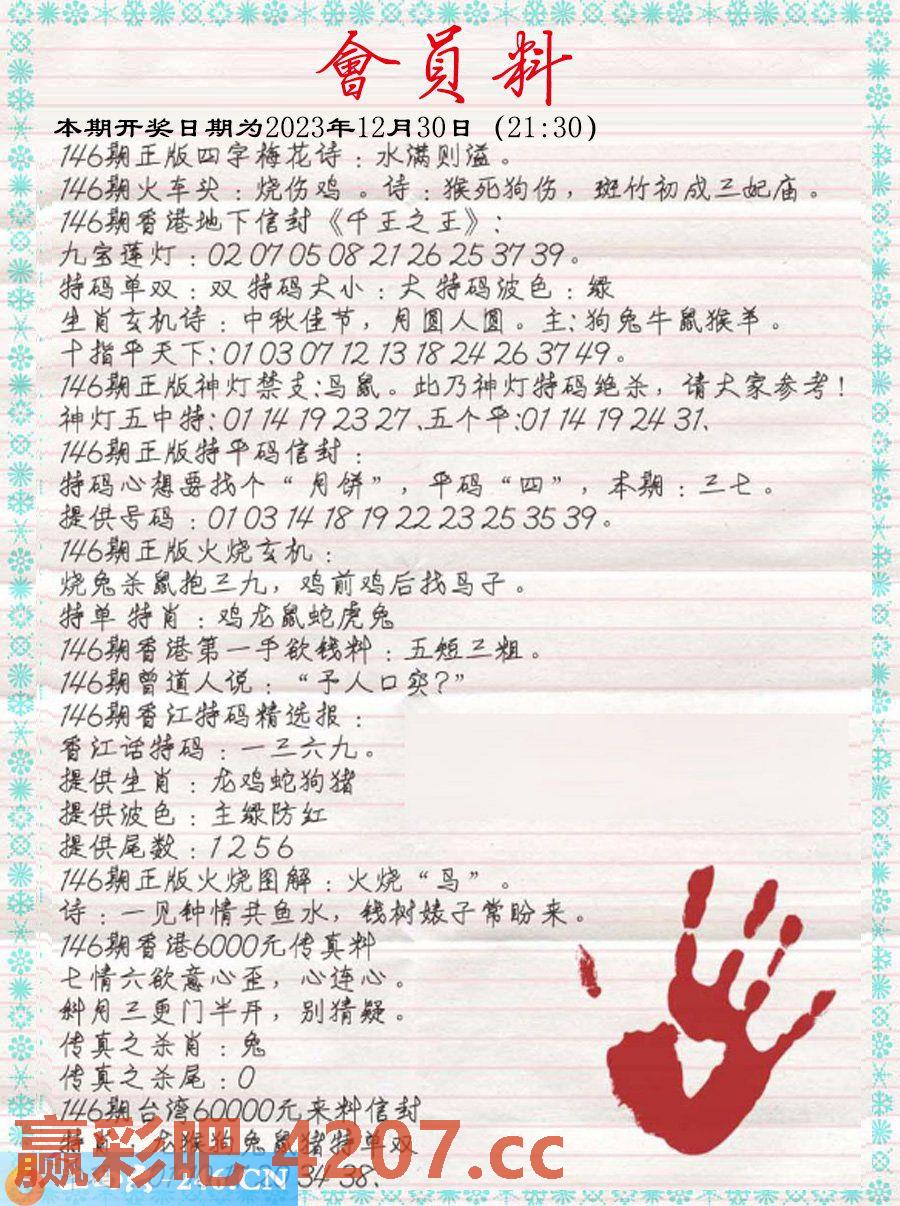 會員料
本期开奖日期为2023年12月30日（21:30）
146期正版四字梅花诗：水满则溢。
146期火车头：烧伤鸡 。诗：猴死狗伤，斑竹初成三妃庙。
146期香港地下信封《千王之王》：
九宝莲灯：02 07 05 08 21 26 25 37 39。
特码单双：双 特码大小：大 特码波色：绿
生肖玄机诗：中秋佳节，月圆人圆。主：狗兔牛鼠猴羊。
十指平天下：01 03 07 12 13 18 24 26 37 49。
146期正版神灯禁支：鸟鼠。此乃神灯特码绝杀，请大家参考！
神灯五中特：01 14 19 23 27、五个平：01 14 19 24 31、
146期正版特平码信封：
特码心想要找个“月饼”，平码“四”，本期：三七。
提供号码：01 03 14 18 19 22 23 25 35 39。
146期正版火烧玄机：
烧兔杀鼠抱三九，鸡前鸡后找马子。
特单 特肖：鸡龙鼠蛇虎兔
146期香港第一手欲钱料：五短三粗。
146期曾道人说：“予人口实？”
146期香江特码精选报：
香江话特码：一三六九。
提供生肖：龙鸡蛇狗猪
提供波色：主绿防红
提供尾数：1 2 5 6
146期正版火烧图解：火烧“鸟”。
诗：一见钟情共鱼水，钱树婊子常盼来。
146期香港6000元传真料
七情六欲意心歪，心连心。
斜月三更门半开，别猜疑。
传真之杀肖：兔
传真之杀尾：0
146期台湾60000元来料信封
特肖：龙猴狗兔鼠猪特单双
赢彩吧 4207.cc
246.CN
34 38、